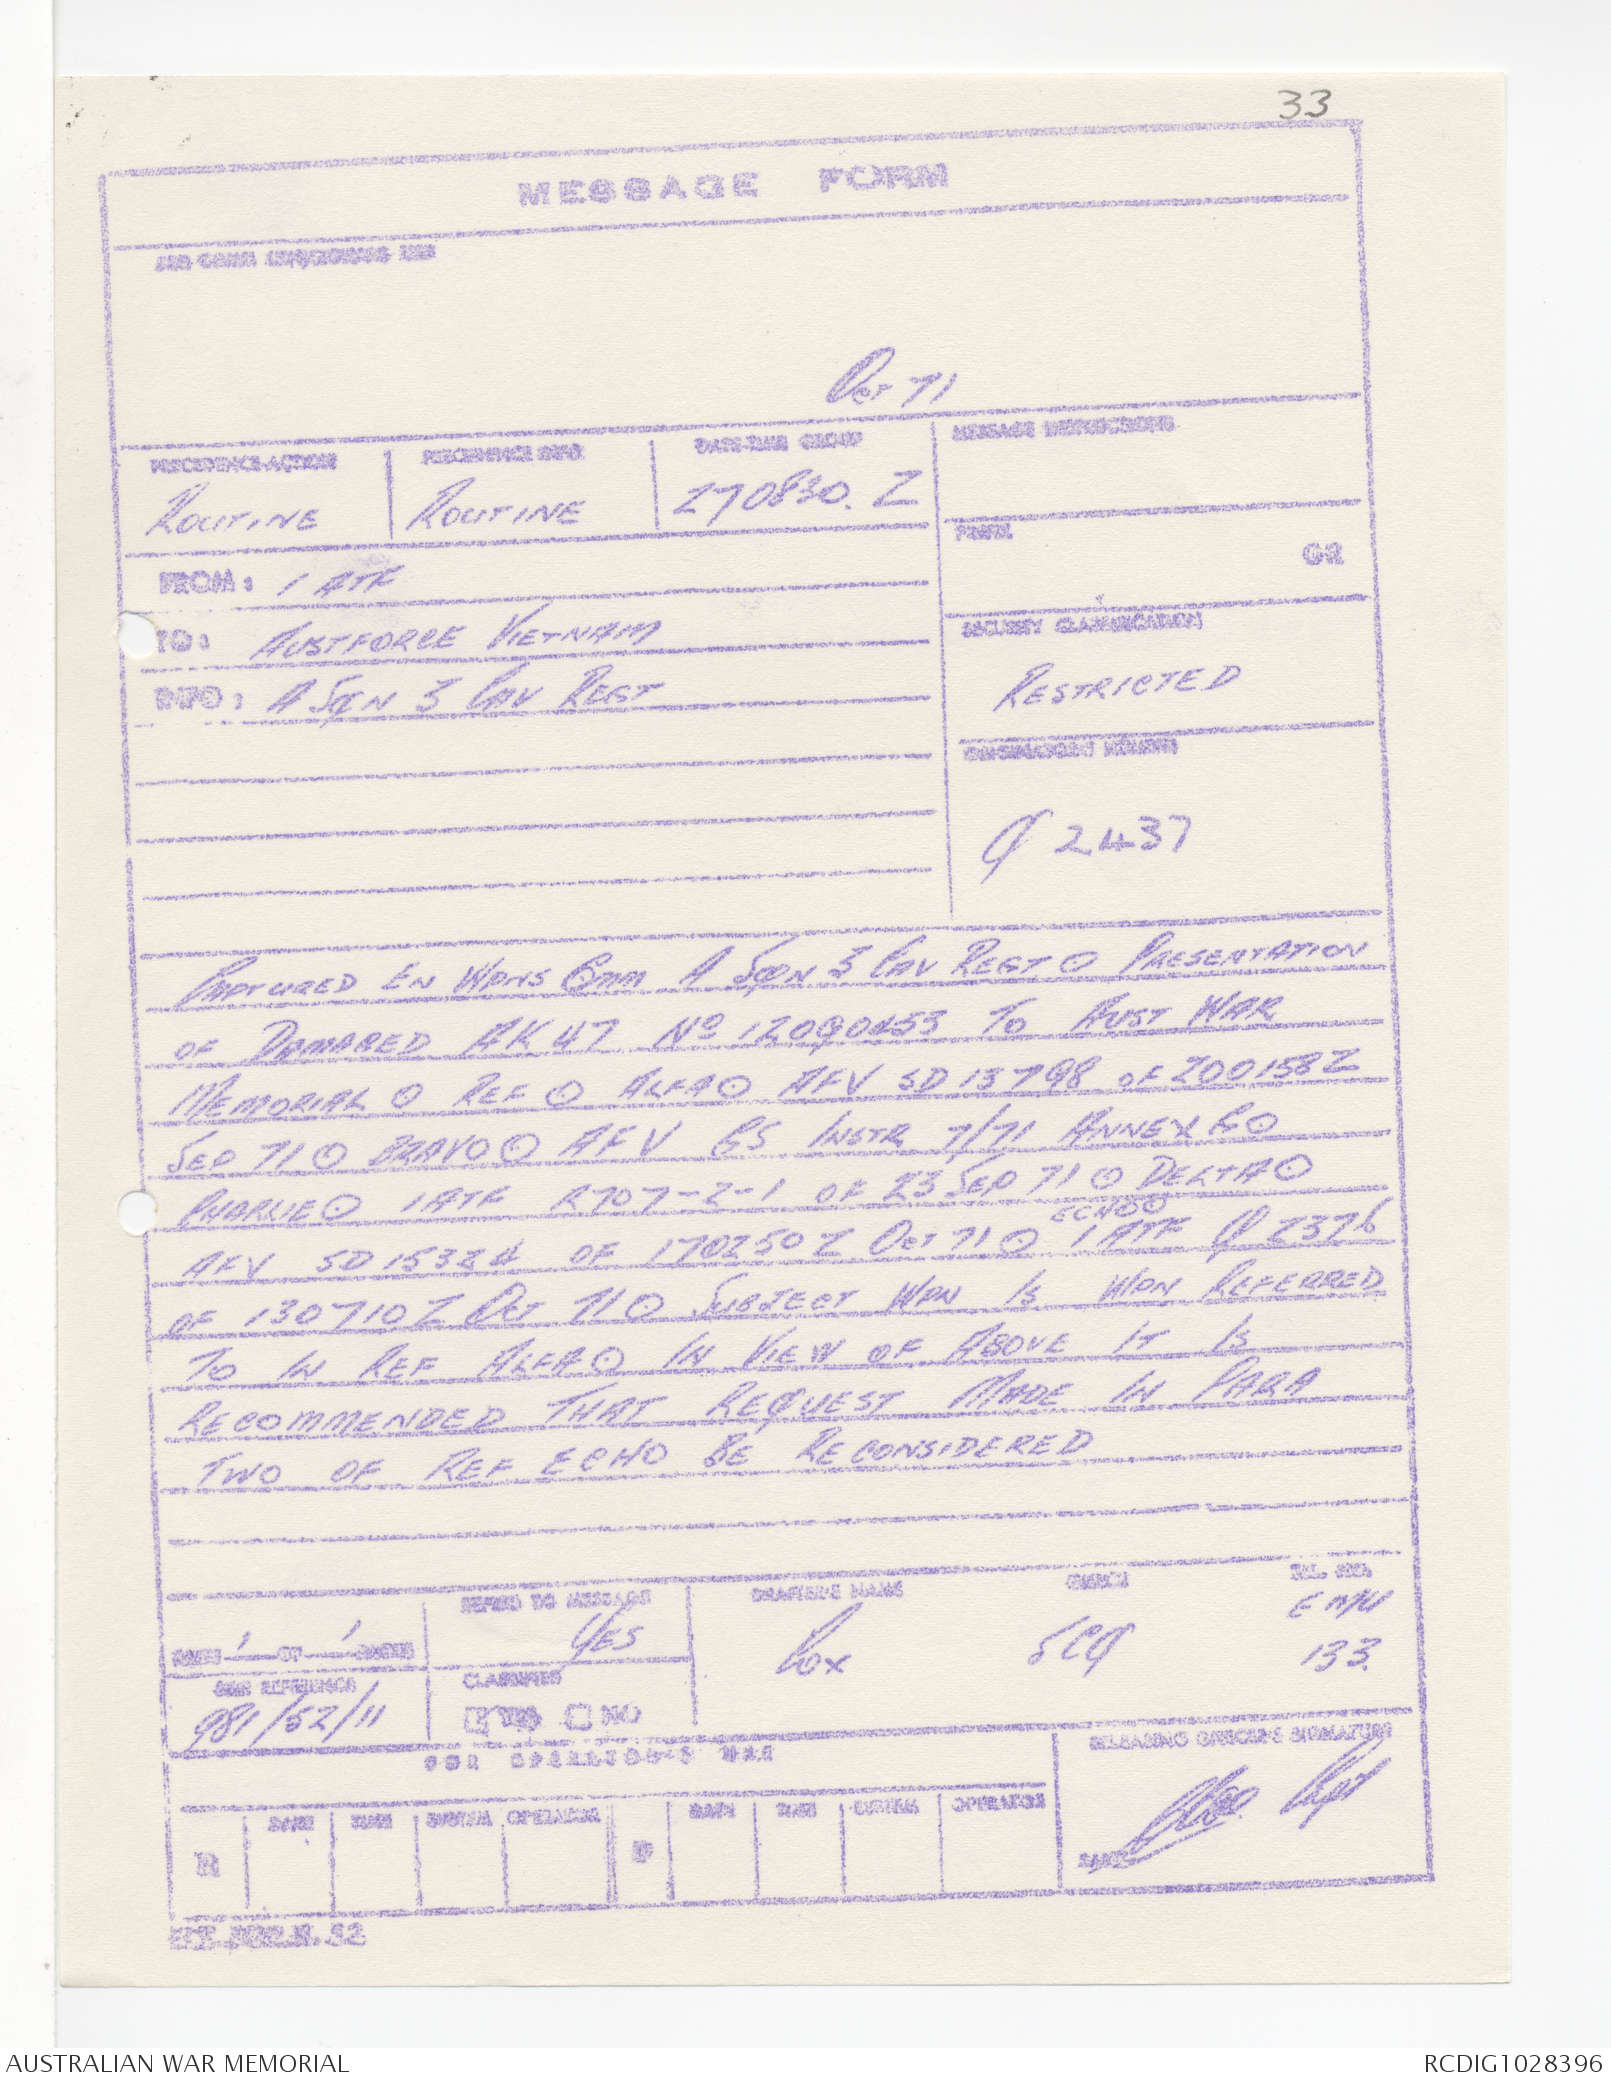 33
MESSAGE FORM
FOR COMM USE
Oct 71
PRECEDENCE-ACTION
PRECEDENCE INFO
DATE-TIME GROUP
MESSAGE INSTRUCTIONS
ROUTINE
ROUTINE
270830. Z
PREFIX
GR
FROM: 1 ATF
TO: AUSTFORCE VIETNAM
SECURITY CLASSIFICATION
INFO: A SQN 3 CAV REGT
RESTRICTED
ORIGINATORS NUMBER
Q 2437
CAPTURED EN WPNS A SQN 3 CAV REGT ⊙ PRESENTATION
OF DAMAGED AK 47 No TO AUST WAR
MEMORIAL ⊙ REF ⊙ ALFA ⊙ AFV SD 13798 OF 200158Z
SEP 71 ⊙ BRAVO ⊙ AFV GS INSTR 7/71 ANNEX ⊙
CHARLIE ⊙ 1 ATF R707-2-1 OF 23 SEP 71 ⊙ DELTA ⊙
ECHO ⊙
AFV SD 15324 OF 170250Z OCT 71 ⊙ 1 ATF Q 2376
OF 130710Z OCT 71 ⊙ SUBJECT WPN IS WPN REFERRED
TO IN REF ALFA ⊙ IN VIEW OF ABOVE IT IS
RECOMMENDED THAT REQUEST MADE IN PARA
TWO OF REF ECHO BE RECONSIDERED
REFERS TO MESSAGE
DRAFTER'S NAME
BRANCH
TEL. NO.
PAGE 1 OF 1 PAGES
YES
COX
SCQ
EMU
133
OUR REFERENCE
CLASSIFIED
981/52/11
YES NO
FOR OPERATOR'S USE
RELEASING OFFICER'S SIGNATURE
Capt
R
DATE
TIME
SYSTEM
OPERATOR
D
DATE
TIME
SYSTEM
OPERATOR
RANK
AUSTRALIAN WAR MEMORIAL
RCDIG1028396